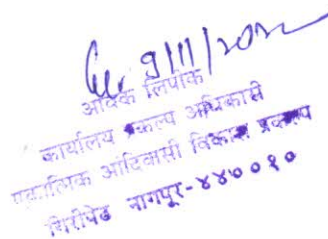 9/11/202
आवक लिपीक
कार्यालय प्रकल्प अधिकारी
एकात्मिक आदिवासी विकास प्रकल्प
गिरीपेठ नागपुर-४४००१०